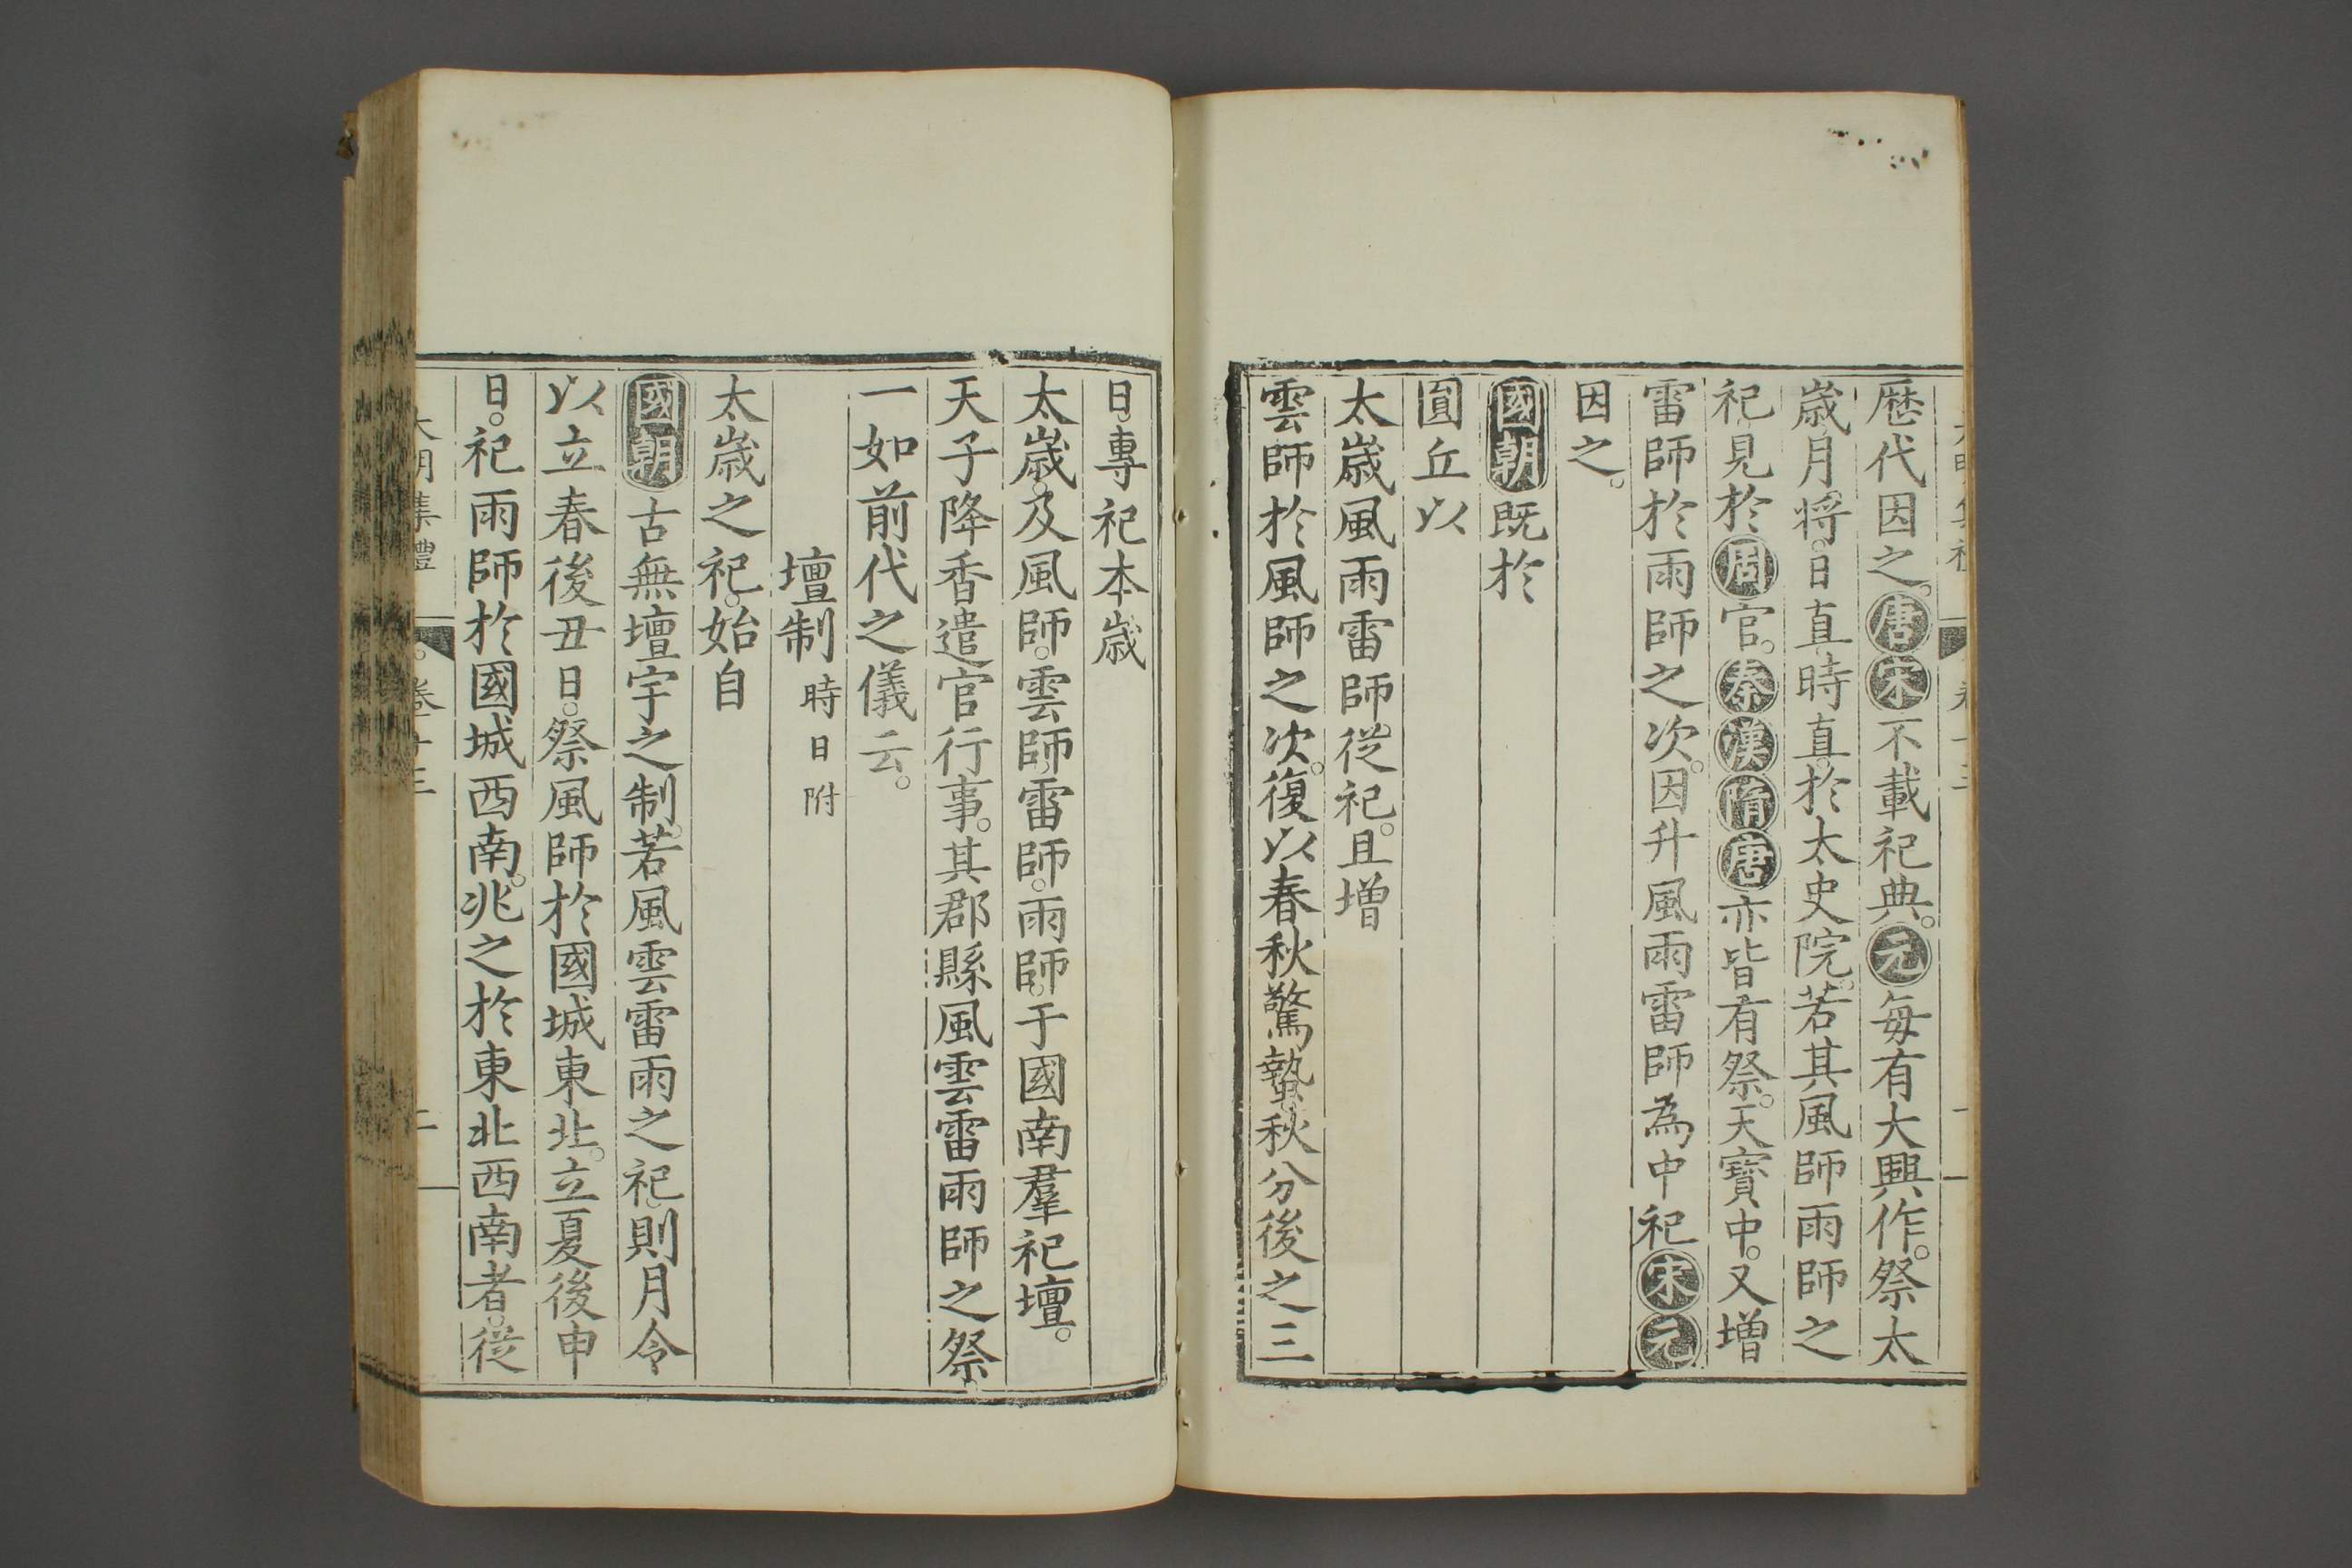 歷代因之。唐宋不載祀典。元每有大興作。祭太
歲月將。日直時直。於太史院。若其風師雨師之
祀。見於周官。秦漢隋唐亦皆有祭。天寶中。又增
雷師於雨師之次。因升風雨雷師為中祀宋元
因之。
國朝既於
圜丘以
太歲風雨雷師。從祀。且增
雲師於風師之次。復以春秋驚蟄。秋分後之三
日專祀本歲
太歲。及風師。雲師雷師。雨師。于國南羣祀壇。
天子降香遣官行事。其郡縣風雲雷雨師之祭。
一如前代之儀云。
壇制 時日附
太歲之祀。始自
國朝古無壇宇之制。若風雲雷雨之祀。則月令
以立春後丑日。祭風師於國城東北。立夏後申
日。祀雨師於國城西南。兆之於東北西南者。從
大明集禮 卷十三 二